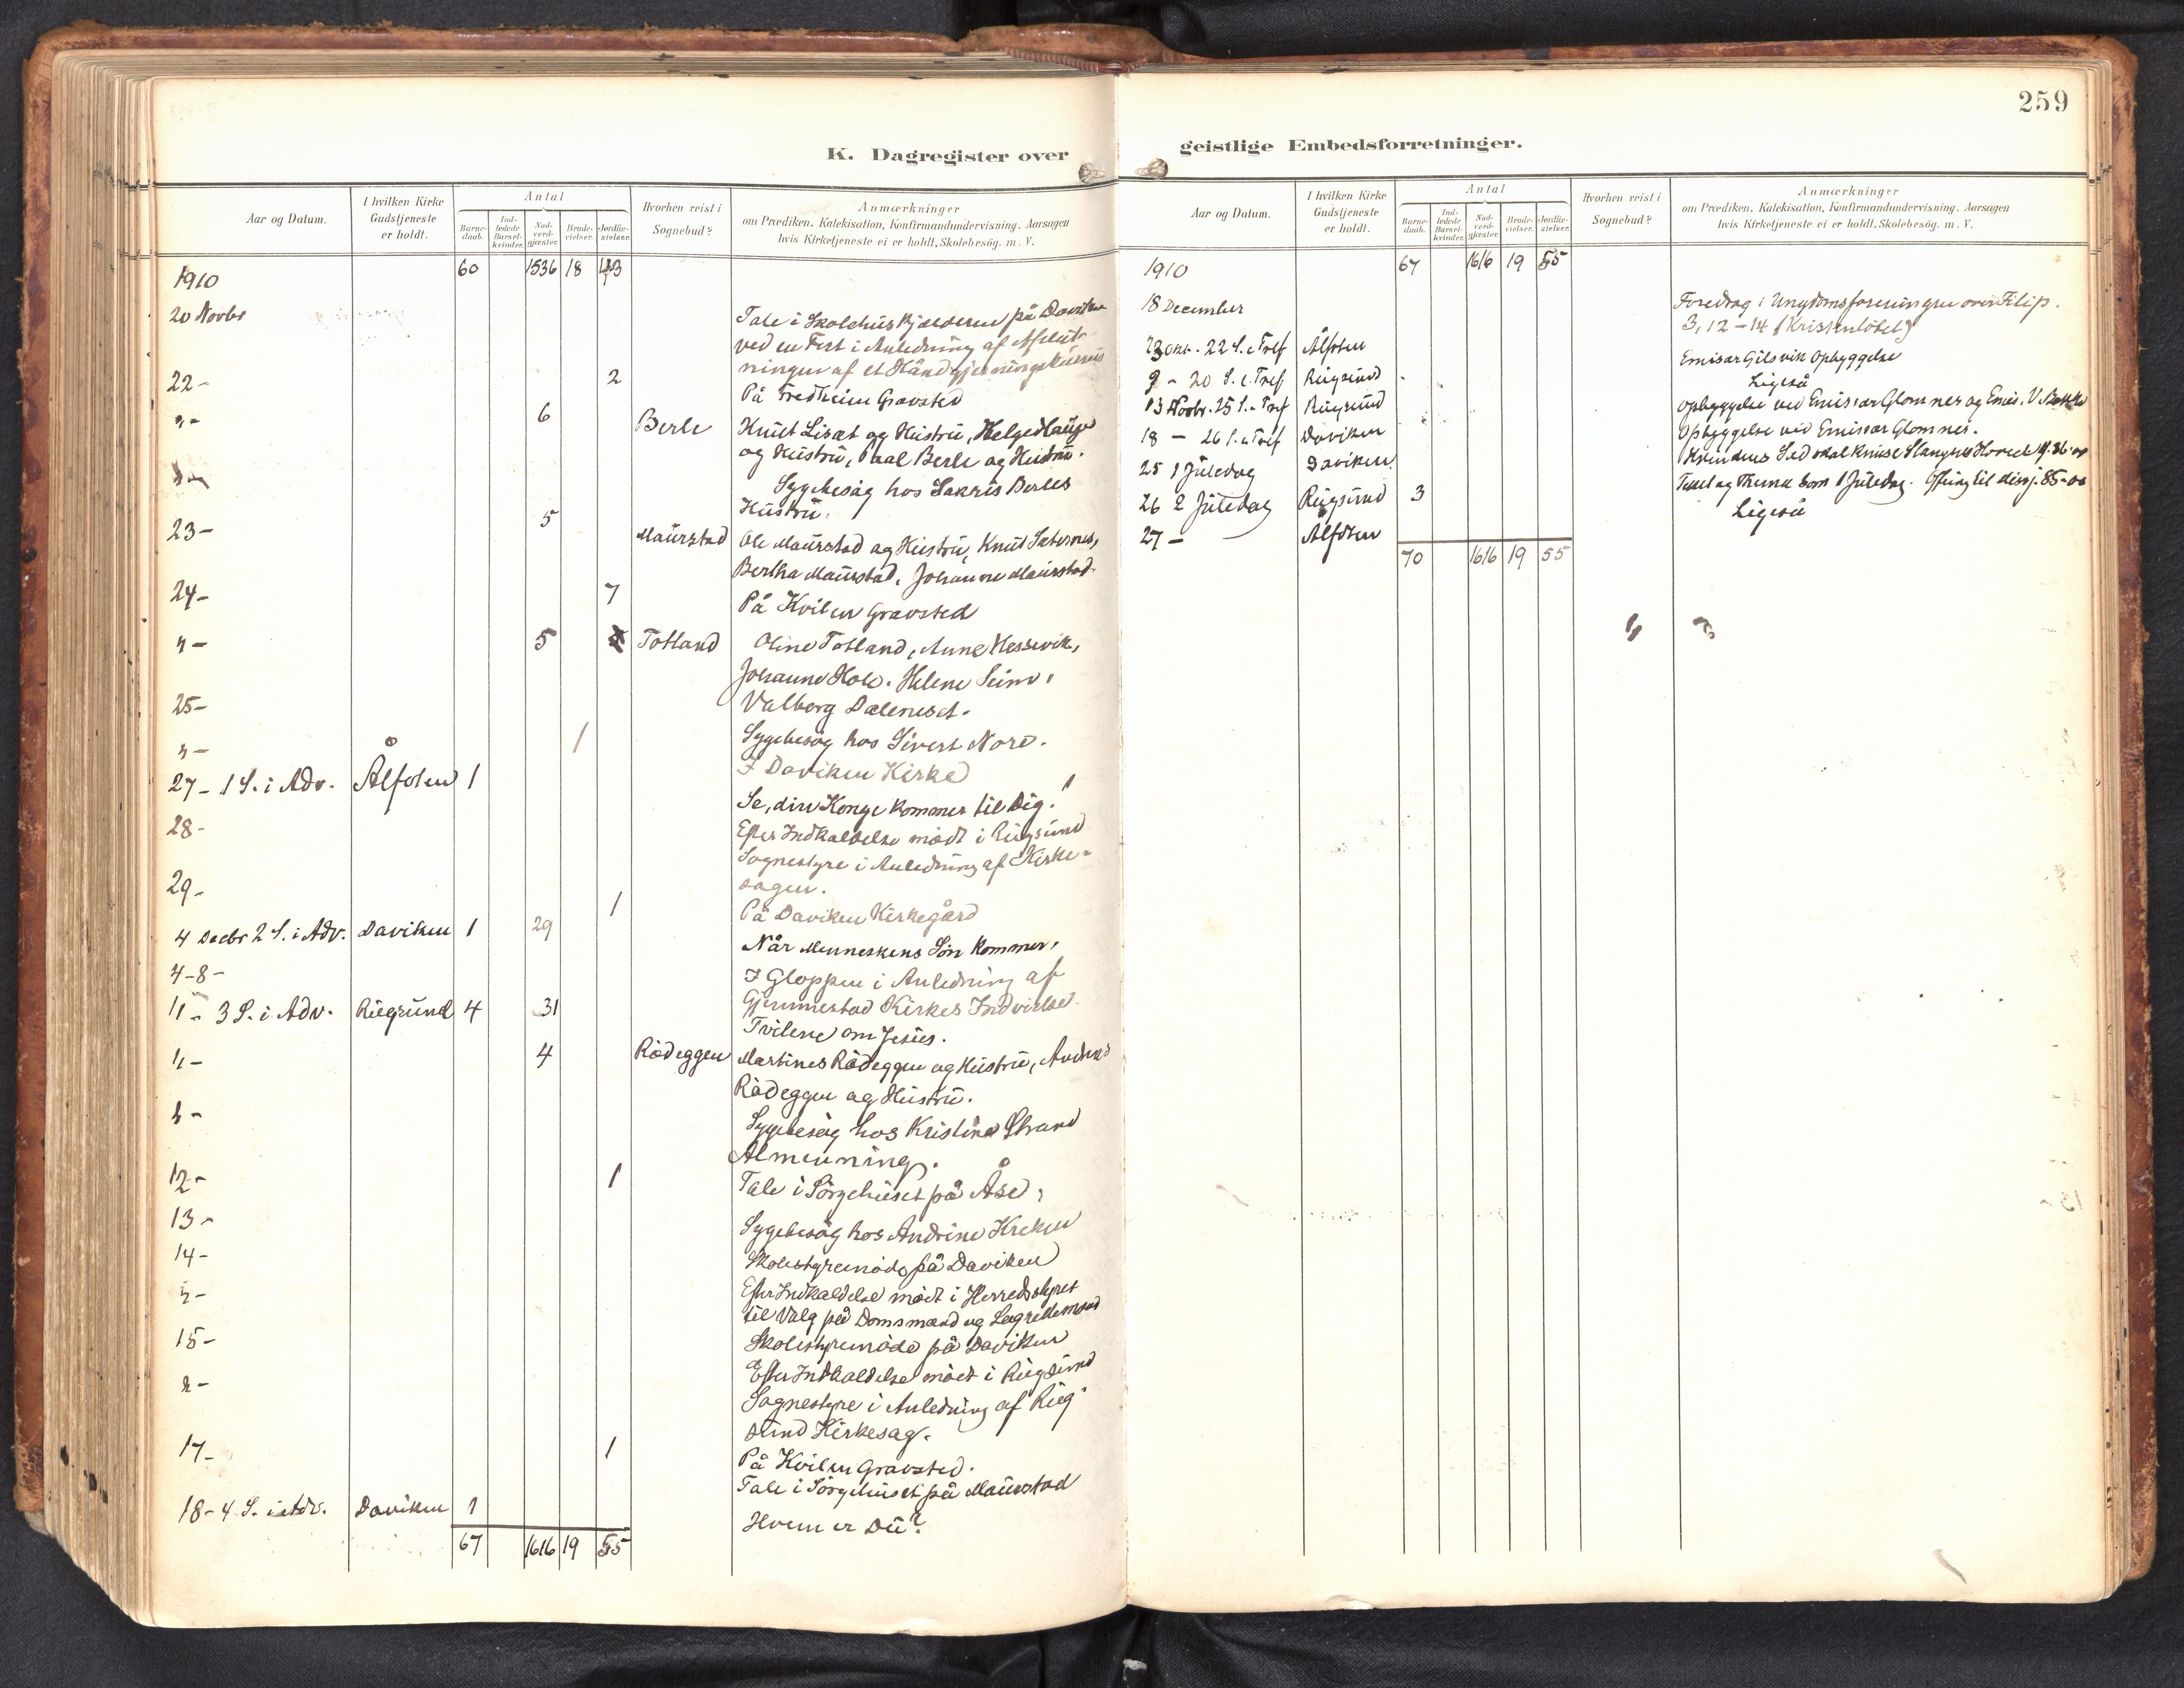 259
K. Dagregister over
geistlige Embedsforretninger.
Aar og Datum.
I hvilken Kirke
Gudstjeneste
er holdt.
Antal
Barne-
daab.
Ind-
ledede
Barsel-
kvinder.
Nad-
verd-
gjæster.
Brude-
vielser.
Jordfæ-
stelser.
Hvorhen reist i
Sognebud?
Anmærkninger
om Prædiken, Katekisation, Konfirmandundervisning, Aarsagen
hvis Kirketjeneste ei er holdt, Skolebesög. m. V.
1910 60 1536 18 43
20 Novbr Tale i Skolehuskjælderen på Daviken
ved en Fest i Anledning af Afslut-
ningen af et Håndgjerningskursus
22- 2 På Fredheim Gravsted
"- 6 Berle Knut Liset og Hustru, Helge Hauge
og Hustru, Paal Berle og Hustru.
"- Sygebesøg hos Sakris Berles
Hustru.
23- 5 Maurstad Ole Maurstad og Hustru, Knut Sæternes,
Bertha Maurstad, Johanne Maurstad.
24- 7 På Hvilen Gravsted
"- 5 Totland Oline Totland, Anne Hessevik,
Johanne Hole. Helene Seim,
Valborg Daleneset.
25- Sygebesøg hos Sivert Nore.
"- 1 I Daviken Kirke
27- 1 S. i Adv. Ålfoten 1 Se, din Konge kommer til Dig!
28- Efter Indkaldelse mødt i Rugsund
Sognestyre i Anledning af Kirke-
sagen.
29- 1 På Daviken Kirkegård
4 Decbr 2 S. i Adv. Daviken 1 29 Når Menneskens Søn kommer.
4-8- I Gloppen i Anledning af
Gjemmestad Kirkes Indvielse.
11- 3 S. i Adv. Rugsund 4 31 Tvilene om Jesus.
"- 4 Rödeggen Martines Rödeggen og Hustru, Anders
Rödeggen og Hustru.
"- Sygebesøg hos Kristine Strand
Almenning.
12- 1 Tale i Sørgehuset på Åse,
13- Sygebesøg hos Andrine Kreken
14- Skolestyremøde på Daviken
"- Efter Indkaldelse mødt i Herredsstyret
til Valg på Domsmænd og Lagrettemænd
15- Skolestyremøde på Daviken
"- Efter Indkaldelse mødt i Rugsund
Sognestyre i Anledning af Rug-
sund Kirkesag.
17- 1 På Hvilen Gravsted.
Tale i Sørgehuset på Maurstad
18- 4 S. i Adv. Daviken 1 Hvem er Du?
67 1616 19 55
Aar og Datum.
I hvilken Kirke
Gudstjeneste
er holdt.
Antal
Barne-
daab.
Ind-
ledede
Barsel-
kvinder.
Nad-
verd-
gjæster.
Brude-
vielser.
Jordfæ-
stelser.
Hvorhen reist i
Sognebud?
Anmærkninger
om Prædiken, Katekisation, Konfirmandundervisning, Aarsagen
hvis Kirketjeneste ei er holdt, Skolebesög. m. V.
1910 67 1616 19 55
18 December Foredrag i Ungdomsforeningen over Filip.
3, 12-14
23 Okt. 22 S. e. Tref Ålfoten Emisær Gilsvik Opbyggelse
9 - 20 S. e. Tref Rugsund Ligeså
13 Novbr. 25 S. e. Tref Rugsund Opbyggelse ved Emisær Glomnes og Emis.
18 - 26 S. e. Tref Daviken Opbyggelse ved Emisær Glomnes.
25 1 Juledag Daviken Kvindens Sæd skal knuse Slangens Hoved
26 2 Juledag Rugsund 3 Text og Thema som 1 Juledag. Ofring til 85-00
27 - Ålfoten Ligeså
70 1616 19 55